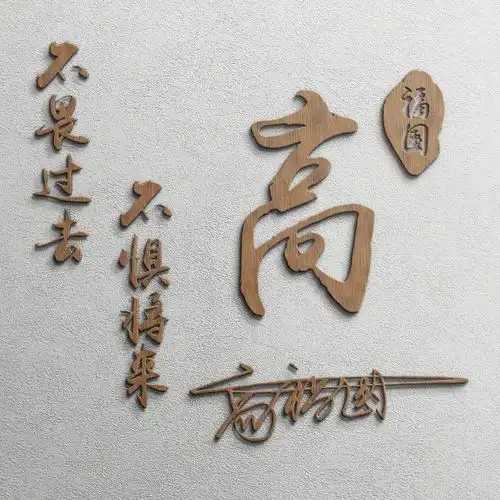 不畏过去
不惧将来
高
福国
高福国